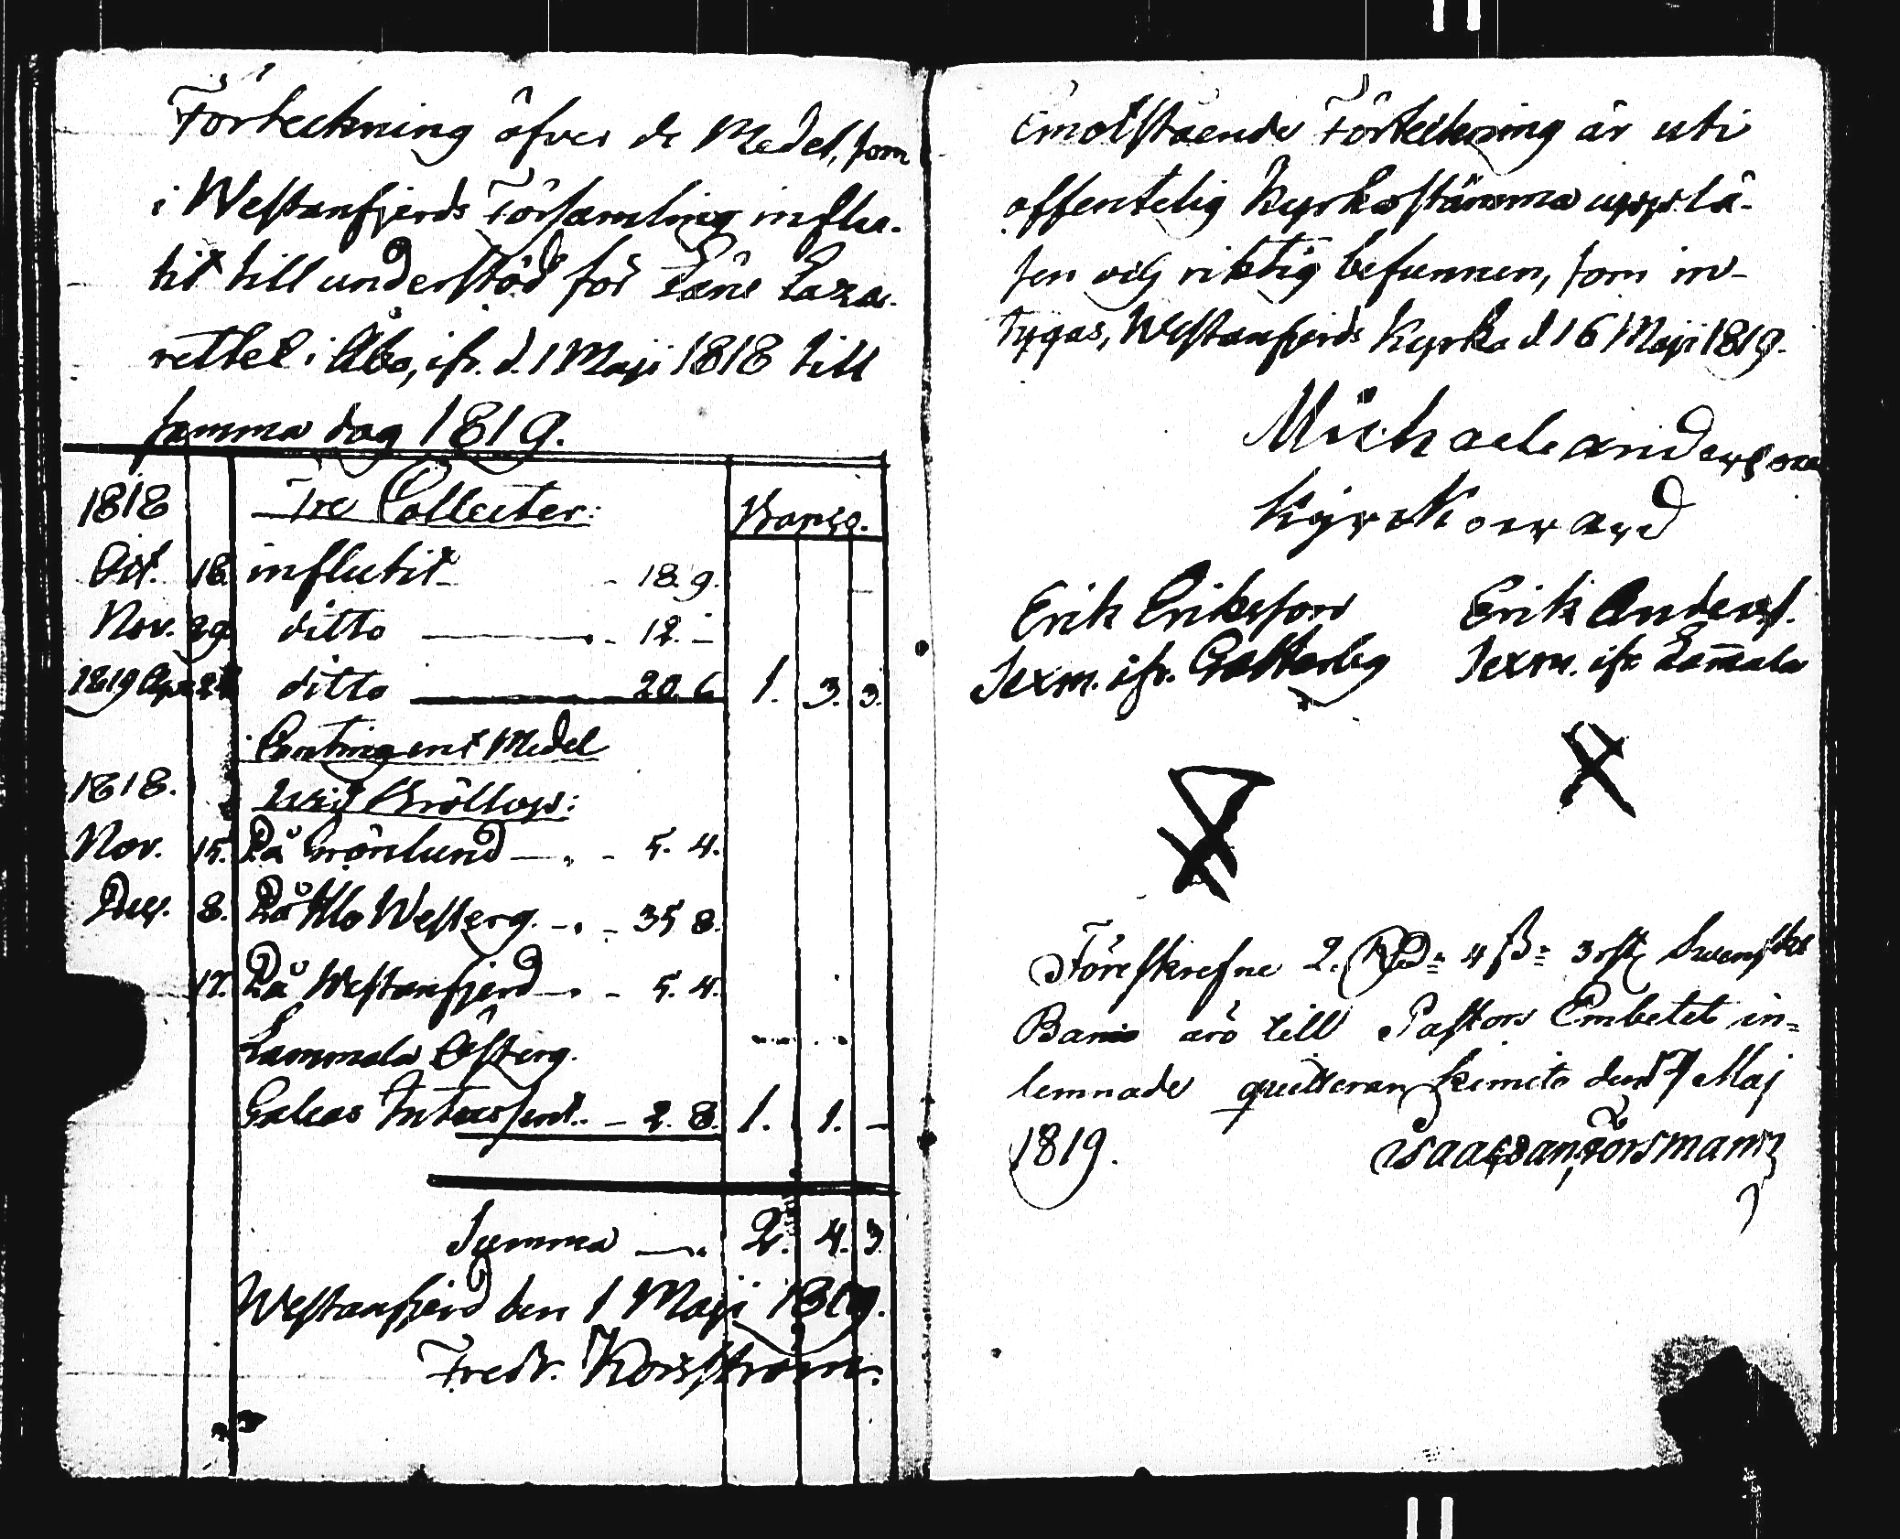 Förteckning öfver de Medel, som
i Westanfjerds Församling influ-
tit till understöd för Läns Laza-
rettet i Åbo, ifr. d. 1 Maji 1818 till
samma dag 1819.
1818 Tre Collecter: Banco.
Oct. 18. influtit - 18. 9.
Nov. 29 ditto - 12. -
1819 Apr. ditto 20. 6 1. 3. 3.
Contingent Medel
1818. wid Bröllop:
Nov. 15. På Grönlund - 5. 4.
Dec. 8. På Westerg. - 35 8.
17. På Westanfjerd - 5. 4.
Lammala Österg.
Galeas Interssent. - 2. 8. 1. 1. -
Summa 2. 4. 3.
Westanfjerd den 1 Maji 1819.
Fredr. Korsström.
Emotstående Förteckning är uti
offentelig Kyrkostämma upplä-
sen och riktig befunnen, som in-
tygas, Westanfjerds Kyrka d. 16 Maji 1819.
Michael anderson
Erik Eriksson Erik Anders.
Sexm. ifr. Galtarby Sexm. ifr. Lam̄ala
Föreskrefne 2. RD= 4 ß= 3 rst. Swenskt
Banco äro till Pastors Embetet in=
lemnade quitteras Kimito den 17 Maj
1819. Isaac Dan. Forsman